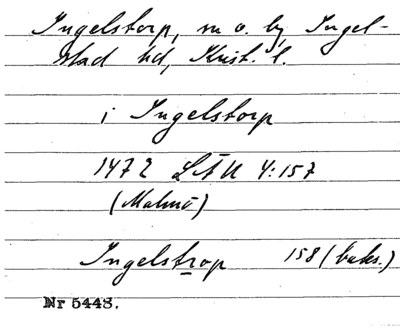 Ingelstorp, sn o. by Ingel-
stad hd, Krist. l.
i Ingelstorp
1472 LÄU 4:157
(Malmö)
Ingelstrop 158 (baks.)
Nr 5443.